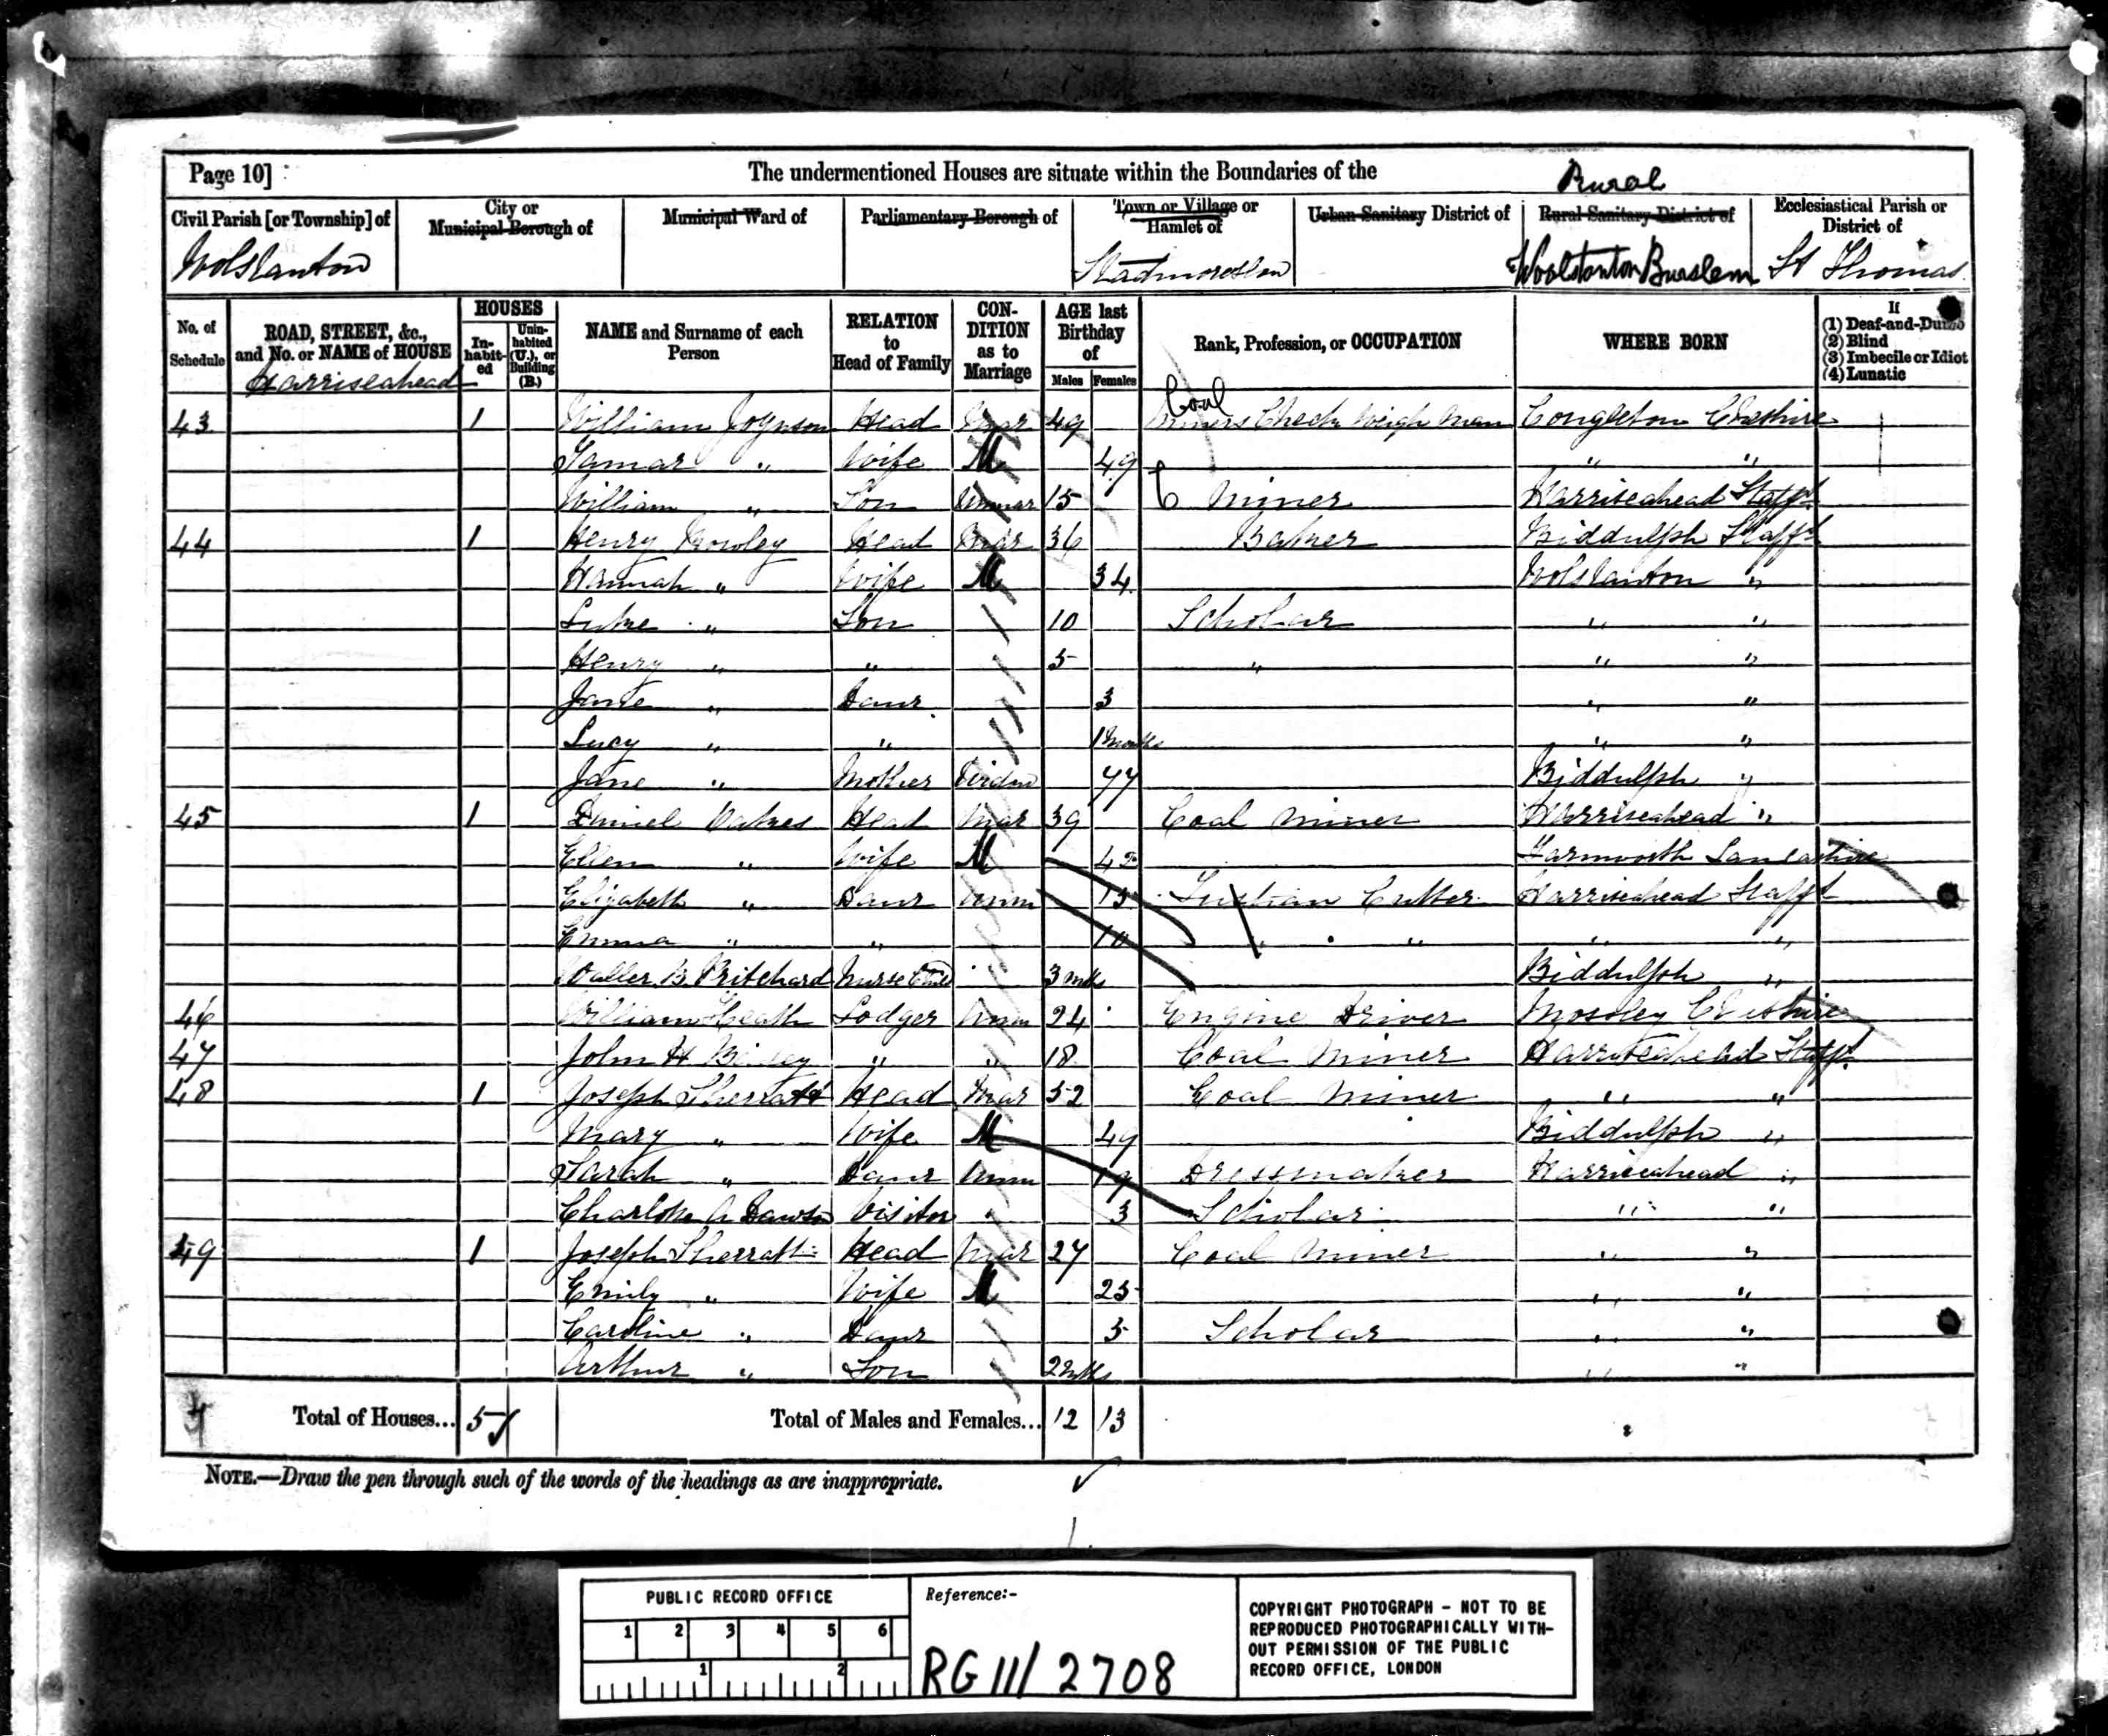 Page 10] The undermentioned Houses are situate within the Boundaries of the Rural
Civil Parish [or Township] of City or Municipal Borough of Municipal Ward of Parliamentary Borough of Town or Village or Hamlet of Urban Sanitary District of Rural Sanitary District of Ecclesiastical Parish or District of
Wolstanton Woolstanton Burslem St Thomas
No. of Schedule ROAD, STREET, &c., and No. or NAME of HOUSE HOUSES Inhabited Uninhabited (U.), or Building (B.) NAME and Surname of each Person RELATION to Head of Family CONDITION as to Marriage AGE last Birthday of Males Females Rank, Profession, or OCCUPATION WHERE BORN If (1) Deaf-and-Dumb (2) Blind (3) Imbecile or Idiot (4) Lunatic
Harriseahead
43 1 William Johnson Head Mar 49 Coal Miners Check Weigh Man Congleton Cheshire
Tamar " Wife M 49 " "
William " Son Unmar 15 C Miner Harriseahead Staffs
44 1 Henry Rowley Head Mar 36 Baker Biddulph Staffs
Hannah " Wife M 34 Wolstanton "
Luke " Son 10 Scholar " "
Henry " " 5 " " "
Jane " Daur 3 " "
Lucy " " 1 Months " "
Jane " Mother 77 Biddulph "
45 1 Daniel Oakes Head Mar 39 Coal Miner Harriseahead "
Ellen " Wife M 42 Farnworth Lancashire
Elizabeth " Daur Unm 13 Fustian Cutter Harriseahead Staffs
Emma " " 10 " " " "
Walter B. Pritchard Nurse Child 3 mths Biddulph "
46 William Heath Lodger Unm 24 Engine Driver Mossley Cheshire
47 John H " " 18 Coal Miner Harriseahead Staffs
48 1 Joseph Sherratt Head Mar 52 Coal Miner " "
Mary " Wife M 49 Biddulph "
Sarah " Daur Unm 19 Dressmaker Harriseahead "
Charlotte A Dawson Visitor 3 Scholar " "
49 1 Joseph Sherratt Head Mar 27 Coal Miner " "
Emily " Wife M 25 " "
Caroline " Daur 5 Scholar " "
Arthur " Son 2 mths " "
Total of Houses... 5 Total of Males and Females... 12 13
NOTE.—Draw the pen through such of the words of the headings as are inappropriate.
PUBLIC RECORD OFFICE
1 2 3 4 5 6
1 2
Reference:-
RG 11/ 2708
COPYRIGHT PHOTOGRAPH - NOT TO BE
REPRODUCED PHOTOGRAPHICALLY WITH-
OUT PERMISSION OF THE PUBLIC
RECORD OFFICE, LONDON